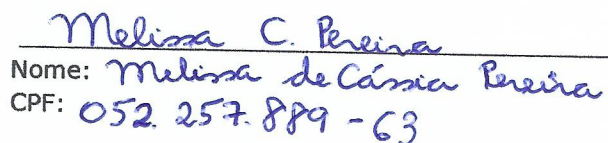 Melissa C. Pereira
Nome: Melissa de Cássia Pereira
CPF: 052.257.889-63